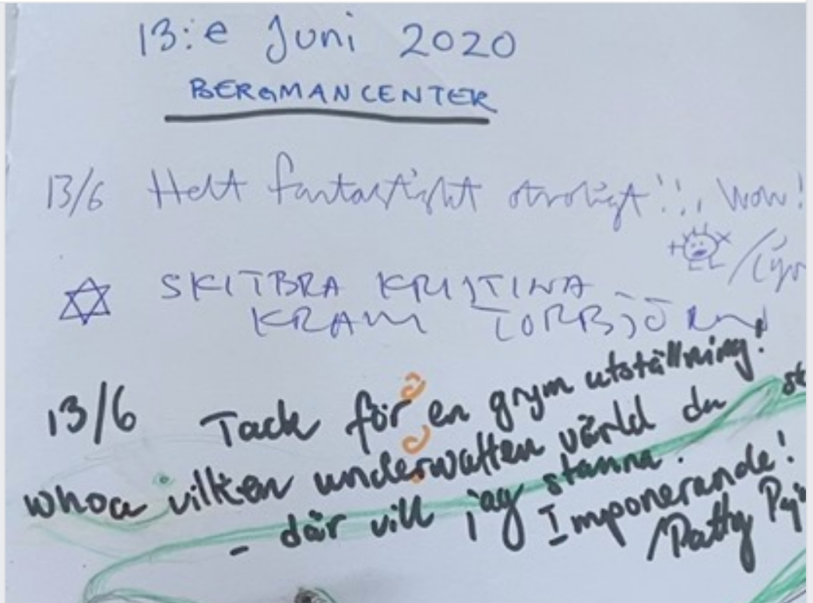 13:e Juni 2020
BERGMANCENTER
13/6 Helt fantastiskt otroligt!!, Wow!
SKITBRA KRISTINA
KRAM TORBJÖRN
13/6 Tack för en grym utställning!
whoa vilken underwatten värld du
- där vill jag stanna.
Imponerande!
/Patty